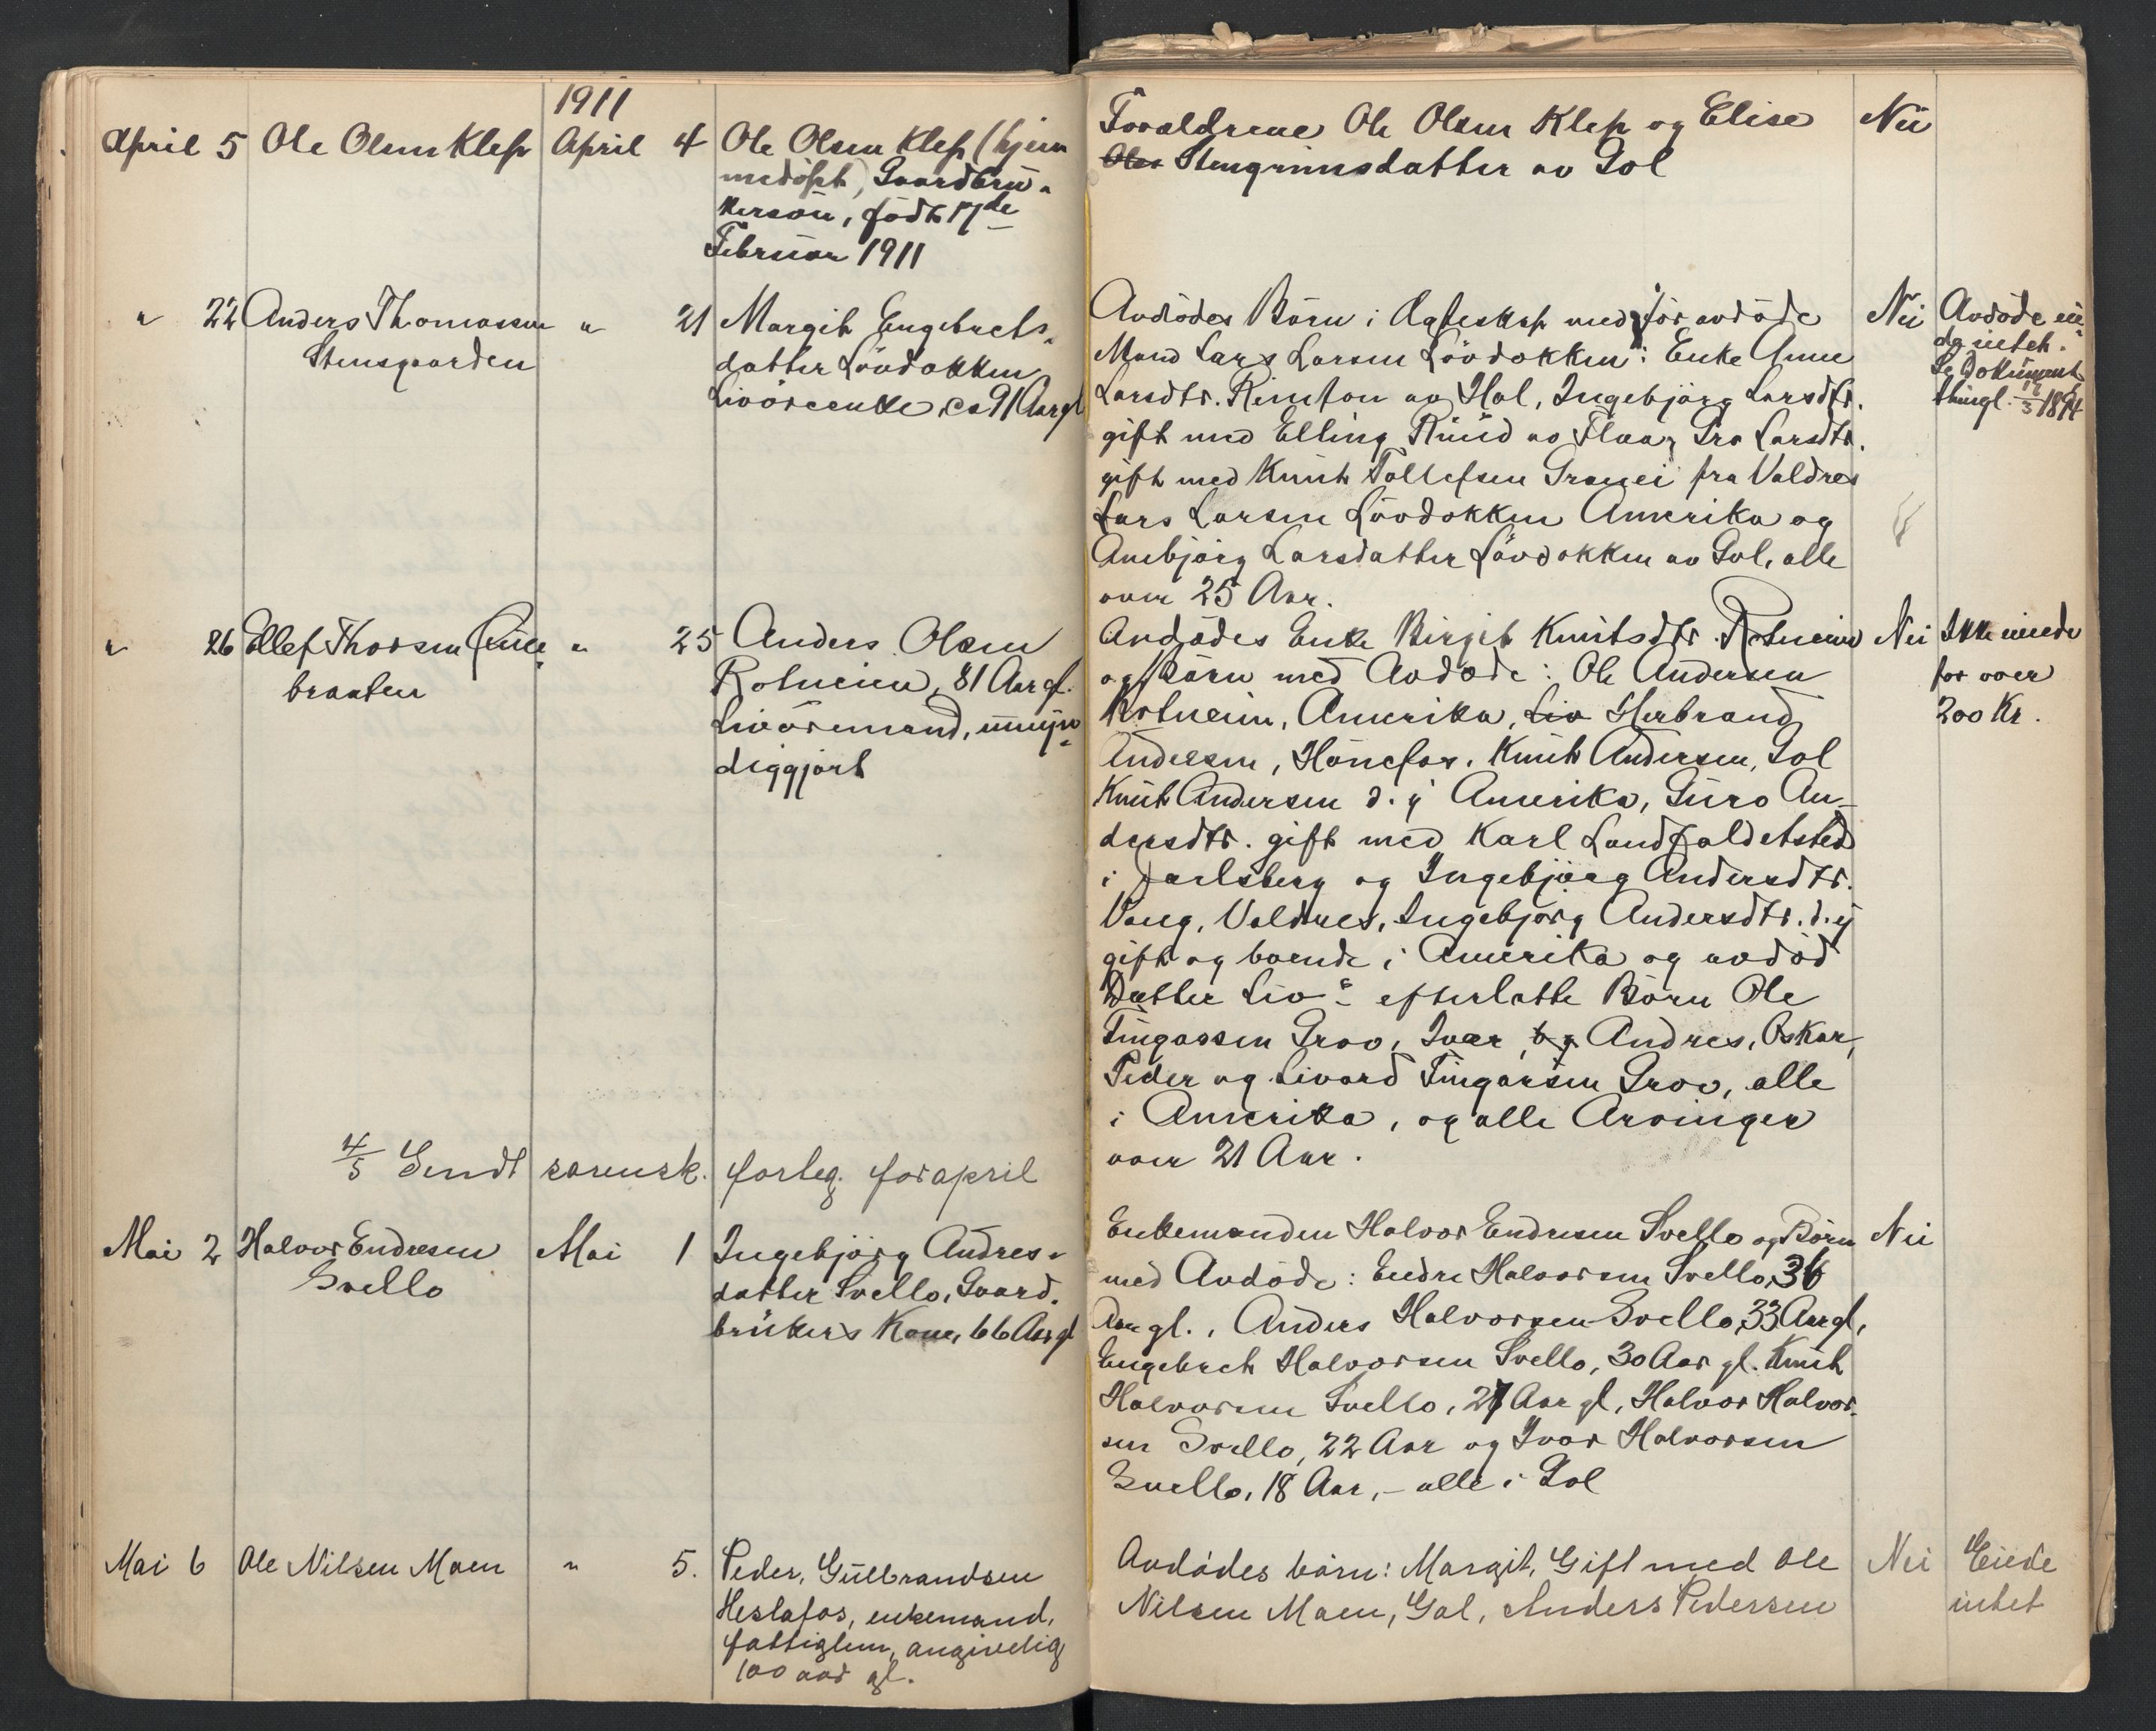 1911
April 5 Ole Olsen Klep April 4 Ole Olsen Klep (hjem
medöpt) Gaardbrü-
kersön, födt 17de
Februar 1911
Foraeldrene Ole Olsen Klep og Elise Nei
Olso Stengrimsdatter av Gol
" 22 Anders Thomassen " 21 Margit Engebrets-
Stensgaarden datter Lövdokken
Livörenke, ca 91 Aar gl
Avdödes Börn i Aegteskap med för avdöde Nei Avdöde ei-
Mand Lars Larsen Lövdokken: Enke Anne de intet.
Larsdtr. Rimton av Hol, Ingebjörg Larsdtr. Se Dokument
gift med Elling Ruud av Flaa, Gro Larsdtr. thingl. 12/3 1894
gift med Knut Tollefsen Granei fra Valdres
Lars Larsen Lövdokken Amerika og
Anebjörg Larsdatter Lövdokken av Gol, alle
over 25 Aar.
" 26 Ellef Thorsen " 25 Anders Olsen
braaten Rotneim, 81 Aar gl.
Livöremand, umyn-
diggjort
Avdödes Enke Birgit Knutsdtr. Rotneim Nei Ikke eiende
og Börn med Avdöde: Ole Andersen for over
Rotneim, Amerika, Liv Herbrand 200 Kr.
Andersen, Hönefos, Knut Andersen, Gol
Knut Andersen d.y. Amerika, Guro An-
dersdtr. gift med Karl Landfaldetsted
i Jarlsberg og Ingebjörg Andersdtr.
Vang, Valdres, Ingebjörg Andersdtr. d.y
gift og boende i Amerika og avdöd
Datter Liv's efterlatte Börn Ole
Fingarsen Grov, Ivar, og Andres, Oskar,
Peder og Sivard Fingarsen Grov, alle
i Amerika, og alle Arvinger
over 21 Aar.
4/5 Sendt sorensk. forteg. for april
Mai 2 Halvor Endresen Mai 1 Ingebjörg Andres-
Svello datter Svello, Gaard-
brükers Kone, 66 Aar gl
Enkemanden Halvor Endresen Svello og Börn Nei
med Avdöde: Endre Halvorsen Svello, 36
Aar gl., Anders Halvorsen Svello, 33 Aar gl,
Engebret Halvorsen Svello, 30 Aar gl. Knut
Halvorsen Svello, 27 Aar gl, Halvor Halvor-
sen Svello, 22 Aar og Ivar Halvorsen
Svello, 18 Aar, - alle i Gol
Mai 6 Ole Nilsen Moen " 5. Peder, Gulbrandsen
Heslafos, enkemand,
fattiglem, angivelig
100 aar gl.
Avdödes börn: Margit, Gift med Ole Nei Eiede
Nilsen Moen, Gol, Anders Pedersen intet